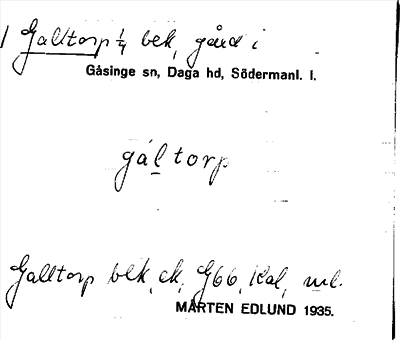 1 Galltorp 1/4 bek, gård i
Gåsinge sn, Daga hd, Södermanl. l.
gáltorp
Galltorp blk, ek, G66, Kal,
MÅRTEN EDLUND 1935.